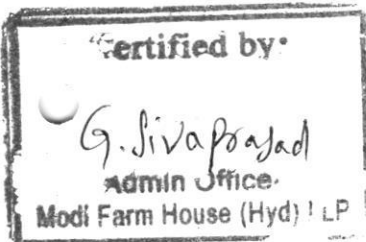 Certified by:
G. Sivaprasad
Admin Office.
Modi Farm House (Hyd) LLP